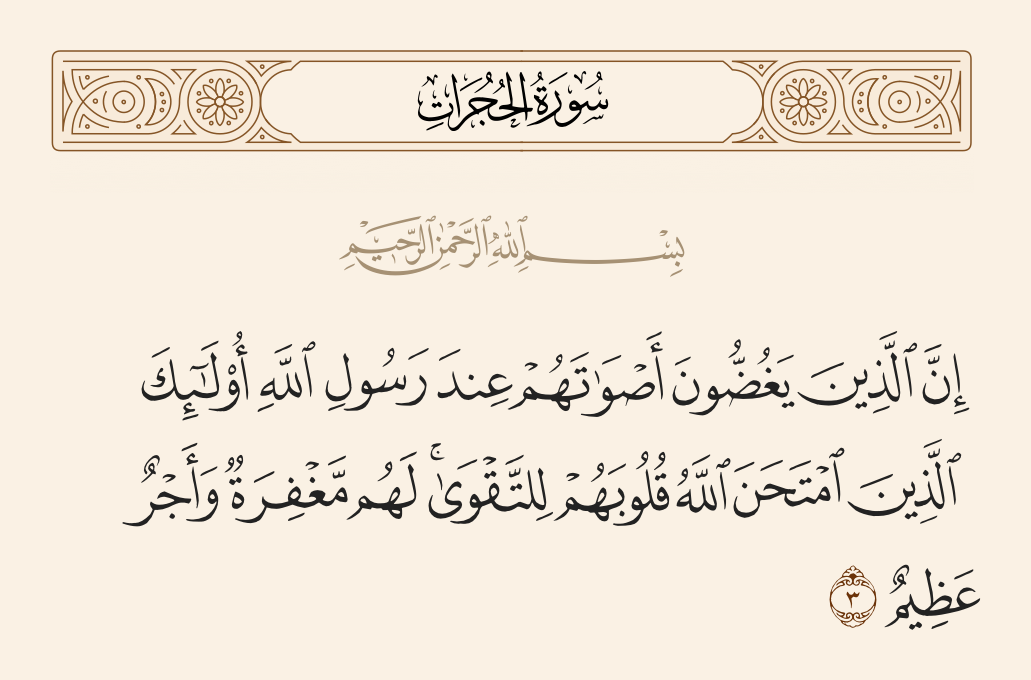 سُورَةُ الحُجُرَاتِ
بِسْمِ ٱللَّهِ ٱلرَّحْمَٰنِ ٱلرَّحِيمِ
إِنَّ ٱلَّذِينَ يَغُضُّونَ أَصْوَٰتَهُمْ عِندَ رَسُولِ ٱللَّهِ أُو۟لَـٰٓئِكَ
ٱلَّذِينَ ٱمْتَحَنَ ٱللَّهُ قُلُوبَهُمْ لِلتَّقْوَىٰ ۚ لَهُم مَّغْفِرَةٌ وَأَجْرٌ
عَظِيمٌ ٣